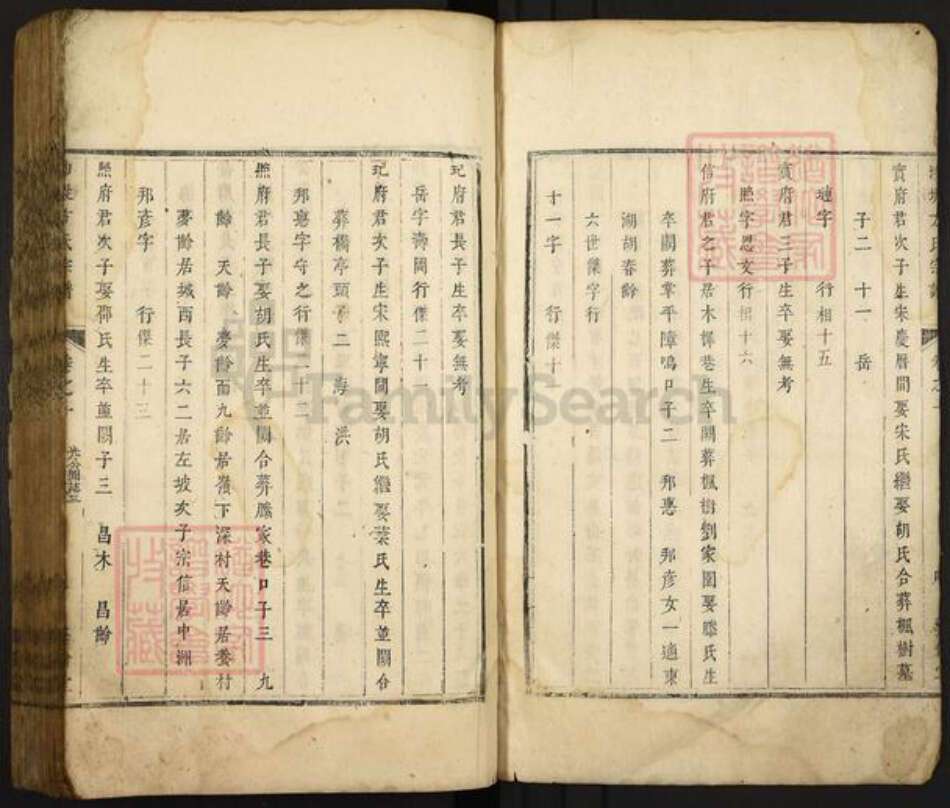 實府君次子生宋慶曆間娶宋氏繼娶胡氏合葬楓樹墓
子二 十一 岳
璉字 行相十五
實府君三子生卒娶無考
照字恩文行相十六
信府君之子居木樨巷生卒闕葬楓樹劉家園娶滕氏生
卒闕葬 平障鳴口子二 邦惠 邦彥女一適東
湖胡春齡
六世傑字行
十一字 行傑十
玘府君長子生卒娶無考
岳字壽岡行傑二十一
玘府君次子生宋熙寧間娶胡氏繼娶葉氏生卒並闕合
葬橋亭頭子二 海 洪
邦惠字守之行傑二十二
照府君長子娶胡氏生卒並闕合葬滕家巷口子三 九
齡 天齡 夢齡而九齡居嶺下深村天齡居委村
夢齡居城西長子六二居左坡次子宗信居中洲
邦彥字 行傑二十三
照府君次子娶鄧氏生卒並闕子三 昌木 昌齡
FamilySearch